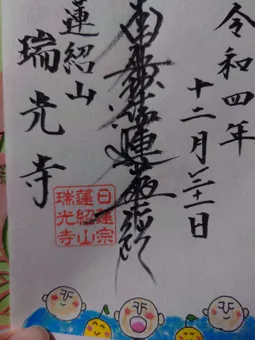 令和四年
十二月廿二日
南無妙法蓮華経
蓮紹山
瑞光寺
日蓮宗
蓮紹山
瑞光寺